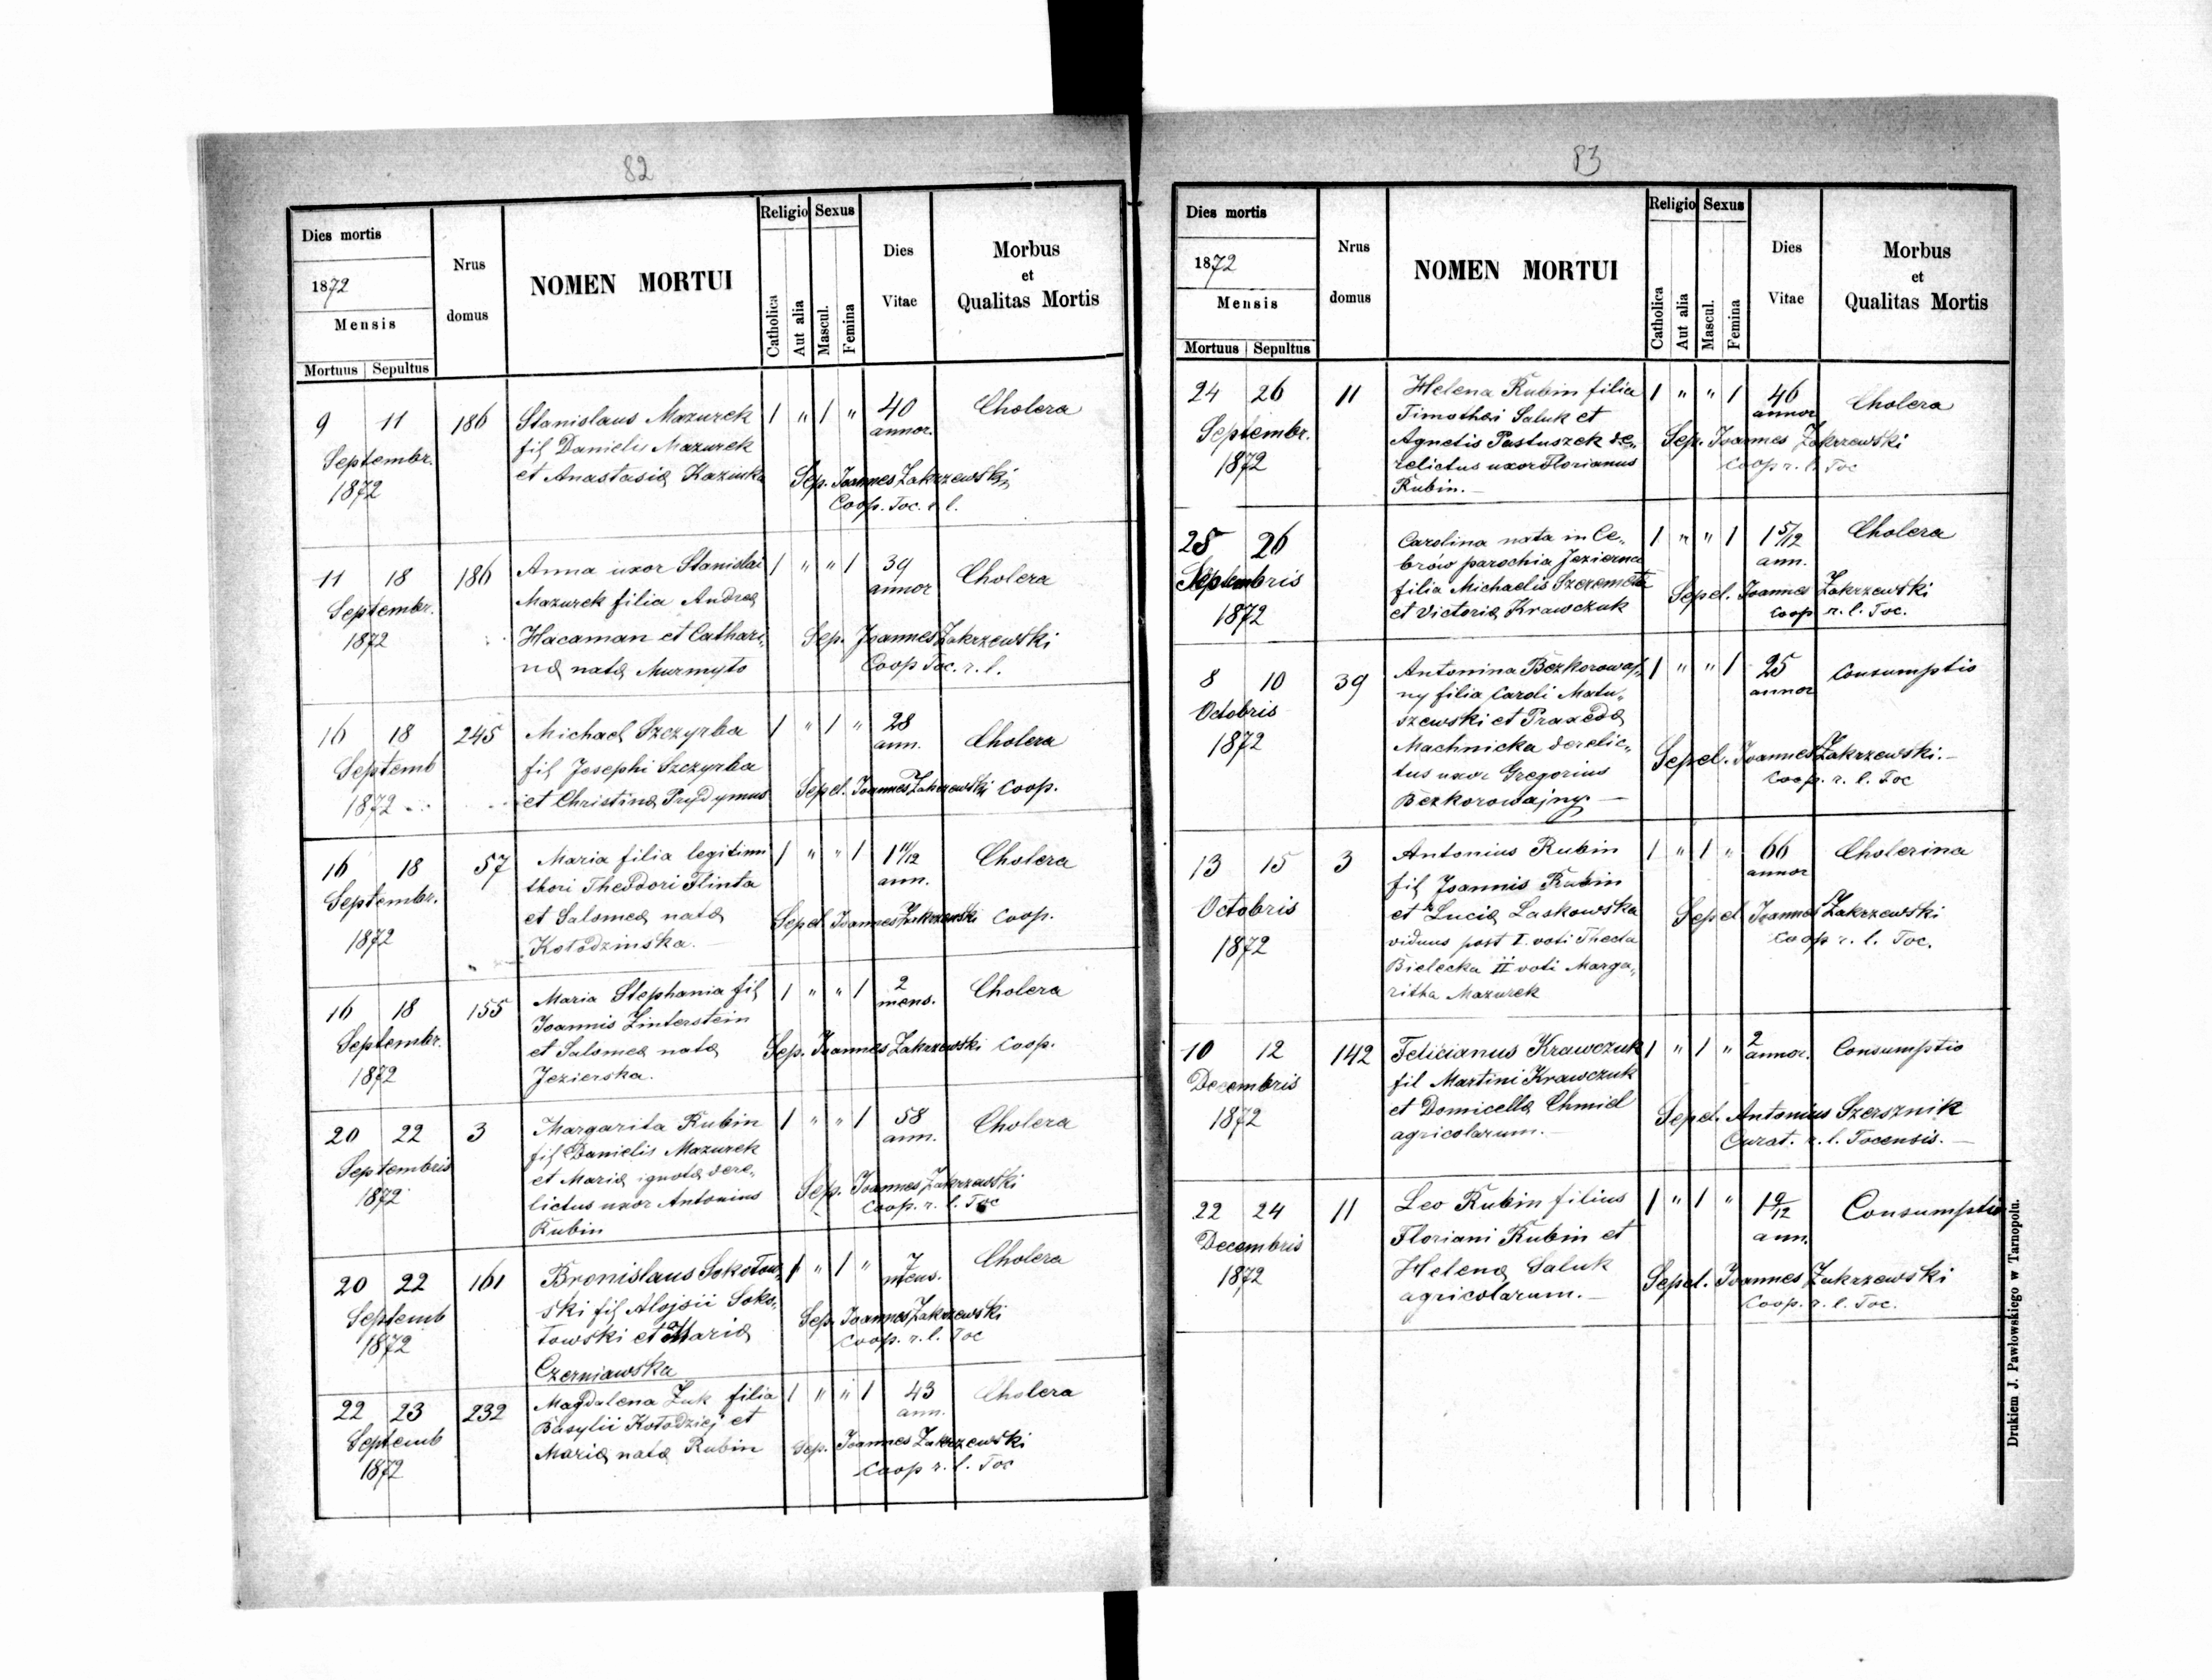 82
Dies mortis
1872
Mensis
Mortuus Sepultus
Nrus
domus
NOMEN MORTUI
Religio Sexus
Catholica
Aut alia
Mascul.
Femina
Dies
Vitae
Morbus
et
Qualitas Mortis
9 11 186 Stanislaus Mazurek 1 " 1 " 40 Cholera
annor.
Septembr. fil Danielis Mazurek
1872 et Anastasia Sep. Joannes Zakrzewski
Coop. Toc. r. l.
11 18 186 Anna uxor Stanislai 1 " " 1 39 Cholera
annor
Septembr. Mazurek filia Andrea
1872 Hacaman et Cathari„ Sep. Joannes Zakrzewski
na nata Murmyto Coop Toc. r. l.
16 18 245 Michael Szczyrba 1 " 1 " 28 Cholera
ann.
Septemb fil Josephi Szczyrba
1872 et Christina Prydymus Sepel. Joannes Zakrzewski Coop.
16 18 57 Maria filia legitimi 1 " " 1 1 11/12 Cholera
ann.
Septembr. thori Theodori Flinta
1872 et Salomea nata Sepel. Joannes Zakrzewski Coop.
Kołodzinska.
16 18 155 Maria Stephania fil 1 " " 1 2 Cholera
mens.
Septembr. Joannis Zinterstein
1872 et Salomea nata Sep. Joannes Zakrzewski Coop.
Jezierska.
20 22 3 Margarita Rubin 1 " " 1 58 Cholera
ann.
Septembris fil Danielis Mazurek
1872 et Maria ignota dere„ Sep. Joannes Zakrzewski
lictus uxor Antonius Coop. r. l. Toc
Rubin
20 22 161 Bronislaus Sokołow„ 1 " 1 " 7 Cholera
mens.
Septemb ski fil Alojsii Soko„
1872 łowski et Maria Sep. Joannes Zakrzewski
Czerniawska Coop. r. l. Toc
22 23 232 Magdalena Zuk filia 1 " " 1 43 Cholera
ann.
Septemb Basylii Kołodziej et
1872 Maria nata Rubin Sep. Joannes Zakrzewski
Coop r. l. Toc
83
Dies mortis
1872
Mensis
Mortuus Sepultus
Nrus
domus
NOMEN MORTUI
Religio Sexus
Catholica
Aut alia
Mascul.
Femina
Dies
Vitae
Morbus
et
Qualitas Mortis
24 26 11 Helena Rubin filia 1 " " 1 46 Cholera
annor
Septembr. Timothei Saluk et
1872 Agnetis Pastuszek de„ Sep. Joannes Zakrzewski
relictus uxor Florianus Coop r. l. Toc
Rubin.
25 26 Carolina nata in Ce„ 1 " " 1 1 5/12 Cholera
ann.
Septembris brów parochia Jezierna
1872 filia Michaelis Szeremeta Sepel. Joannes Zakrzewski
et Victoria Krawczuk Coop r. l. Toc.
8 10 39 Antonina Bezkorowaj„ 1 " " 1 25 Consumptio
annor
Octobris ny filia Caroli Matu„
1872 szewski et Praxeda
Machnicka derelic„ Sepel. Joannes Zakrzewski.
tus uxor Gregorius Coop. r. l. Toc
Bezkorowajny.
13 15 3 Antonius Rubin 1 " 1 " 66 Cholerina
annor
Octobris fil Joannis Rubin
1872 et Lucia Laskowska Sepel Joannes Zakrzewski
viduus post I. voti Thecla Coop r. l. Toc.
Bielecka II voti Marga„
ritha Mazurek
10 12 142 Felicianus Krawczuk 1 " 1 " 2 Consumptio
annor.
Decembris fil Martini Krawczuk
1872 et Domicella Chmiel Sepel. Antonius Szersznik
agricolarum. Curat. r. l. Tocensis.
22 24 11 Leo Rubin filius 1 " 1 " 1 9/12 Consumptio
ann.
Decembris Floriani Rubin et
1872 Helena Saluk Sepel. Joannes Zakrzewski
agricolarum. Coop. r. l. Toc.
Drukiem J. Pawłowskiego w Tarnopolu.